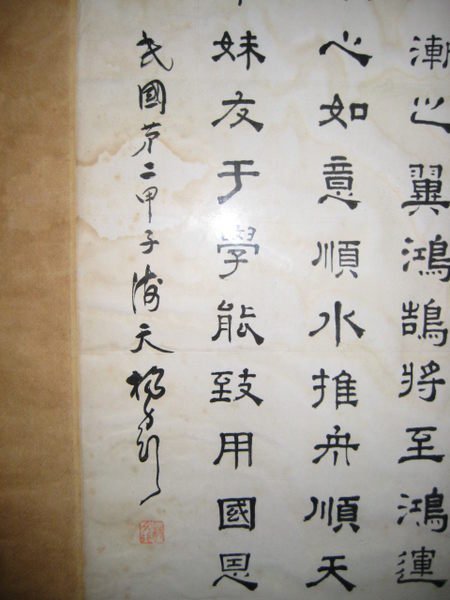 漸之翼鴻鵠將至鴻運
心如意順水推舟順天
妹友于學能致用國恩
民國第二甲子 天 楊